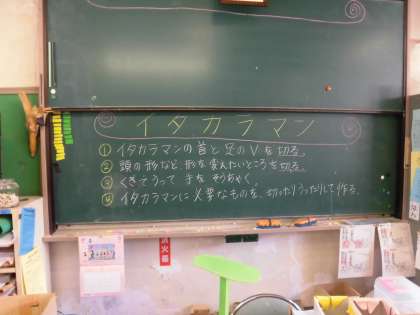 イタカラマン
①イタカラマンの首と足のVを切る。
②頭の形など、形を変えたいところを切る。
③くぎをうって手をそうちゃく。
④イタカラマンに必要なものを、切ったりうったりして作る。
消火器